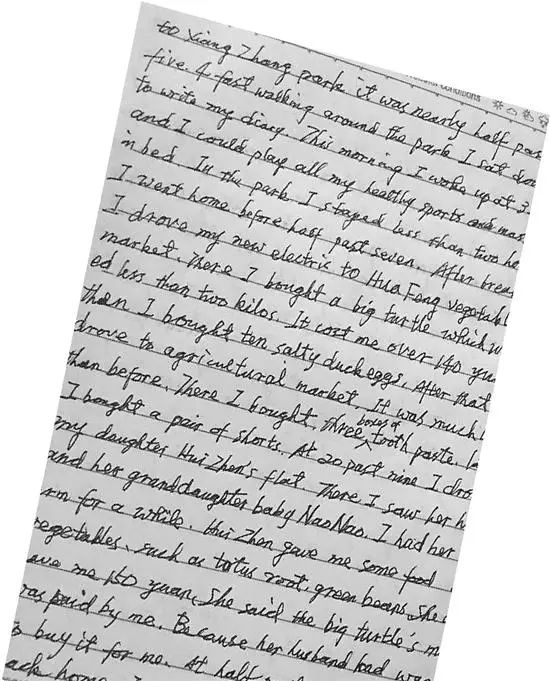 to Xiang Zhang park it was nearly half pas
conditions
five. A fast walking around the park I sat dow
to write my diary. This morning I woke up at 3
and I could play all my healthy sports and mas
in bed. In the park I stayed less than two ho
I went home before half past seven. After brea
I drove my new electric to Hua Feng vegetabl
market. There I bought a big turtle which w
ed less than two kilos. It cost me over 140 yua
then I bought ten salty duck eggs. After that
drove to agricultural market, it was much
than before. There I bought three boxes of tooth paste. La
I bought a pair of shorts. At 20 past nine I dro
my daughter Hui Zhen's flat There I saw her h
and her granddaughter baby Nao Nao. I had her
rm for a while. Hui Zhen gave me some food
vegetables, such as totus root, green beans, She
ave me 150 yuan, She said the big turtle's m
as paid by me. Because her husband had wa
o buy it for me. At half
ack home.